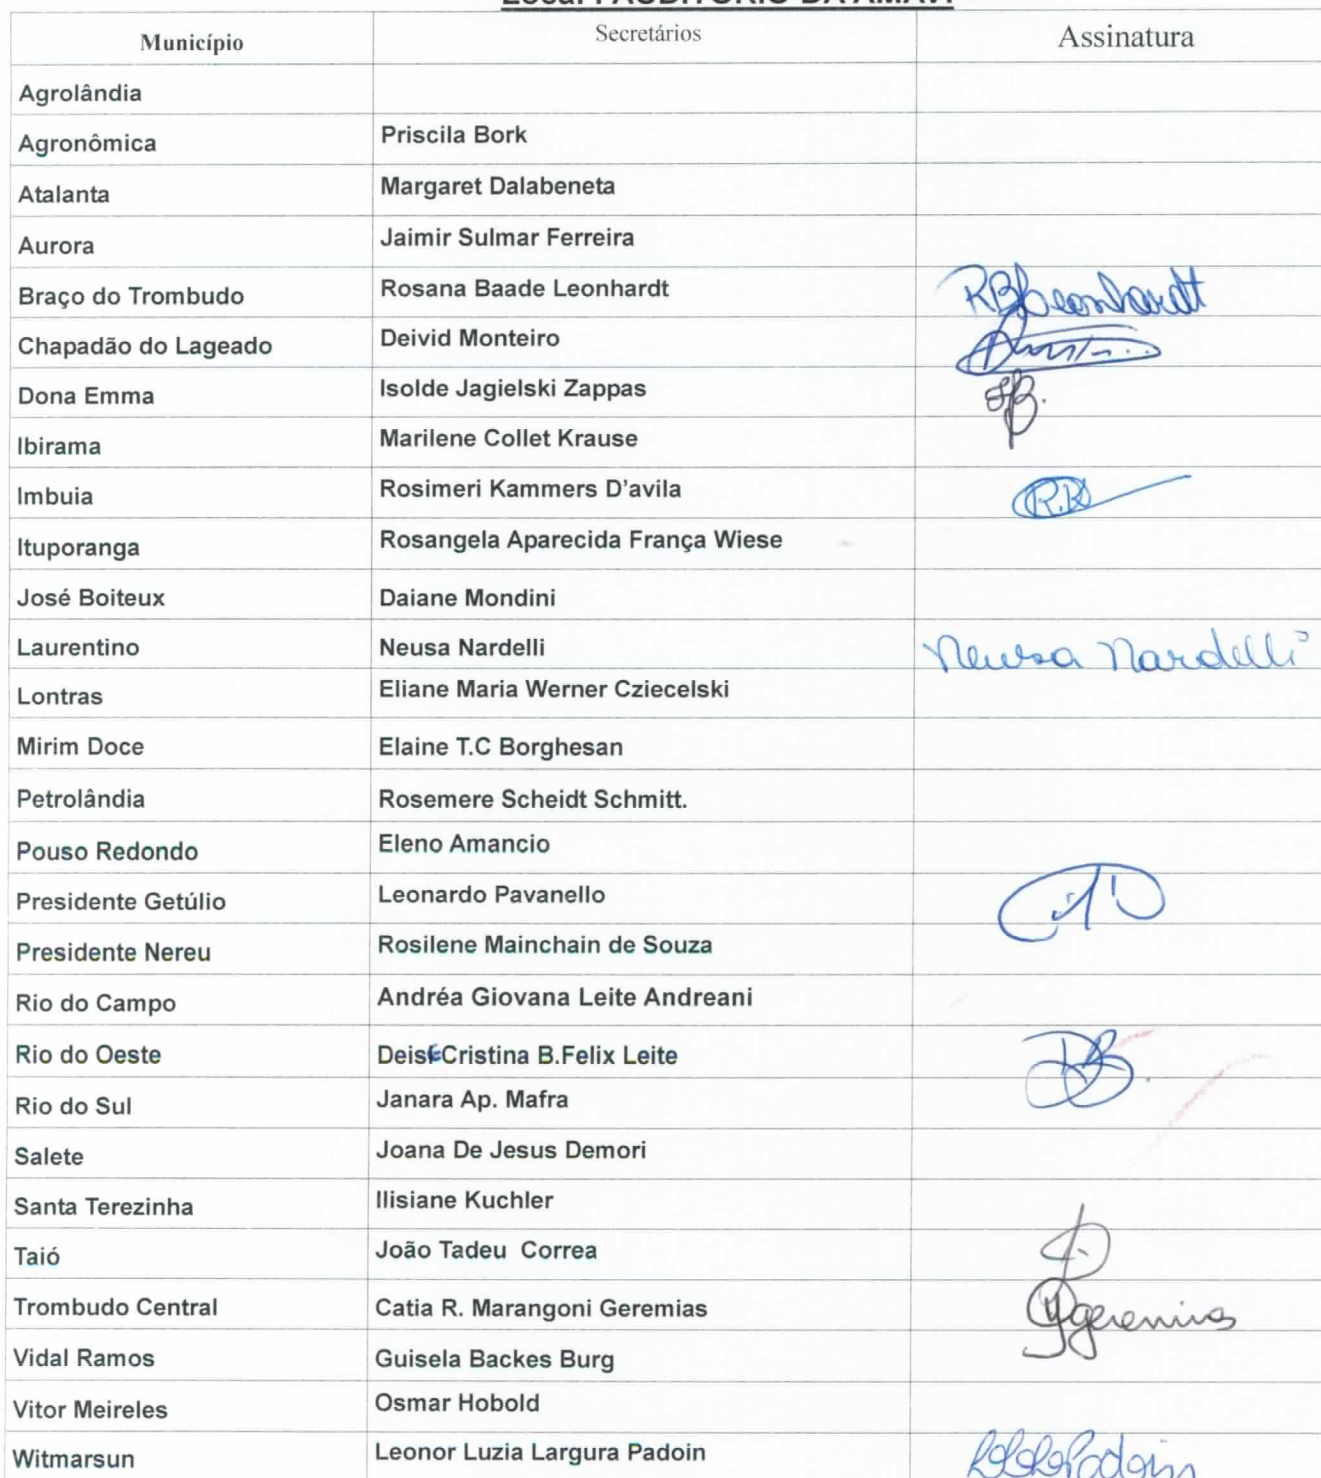 Local : AUDITÓRIO DA AMAVI
Município Secretários Assinatura
Agrolândia
Agronômica Priscila Bork
Atalanta Margaret Dalabeneta
Aurora Jaimir Sulmar Ferreira
Braço do Trombudo Rosana Baade Leonhardt RBLeonhardt
Chapadão do Lageado Deivid Monteiro
Dona Emma Isolde Jagielski Zappas
Ibirama Marilene Collet Krause
Imbuia Rosimeri Kammers D’avila R.K
Ituporanga Rosangela Aparecida França Wiese
José Boiteux Daiane Mondini
Laurentino Neusa Nardelli Neusa Nardelli
Lontras Eliane Maria Werner Cziecelski
Mirim Doce Elaine T.C Borghesan
Petrolândia Rosemere Scheidt Schmitt.
Pouso Redondo Eleno Amancio
Presidente Getúlio Leonardo Pavanello
Presidente Nereu Rosilene Mainchain de Souza
Rio do Campo Andréa Giovana Leite Andreani
Rio do Oeste DeisECristina B.Felix Leite
Rio do Sul Janara Ap. Mafra
Salete Joana De Jesus Demori
Santa Terezinha Ilisiane Kuchler
Taió João Tadeu Correa
Trombudo Central Catia R. Marangoni Geremias Geremias
Vidal Ramos Guisela Backes Burg
Vitor Meireles Osmar Hobold
Witmarsun Leonor Luzia Largura Padoin LLLPadoin